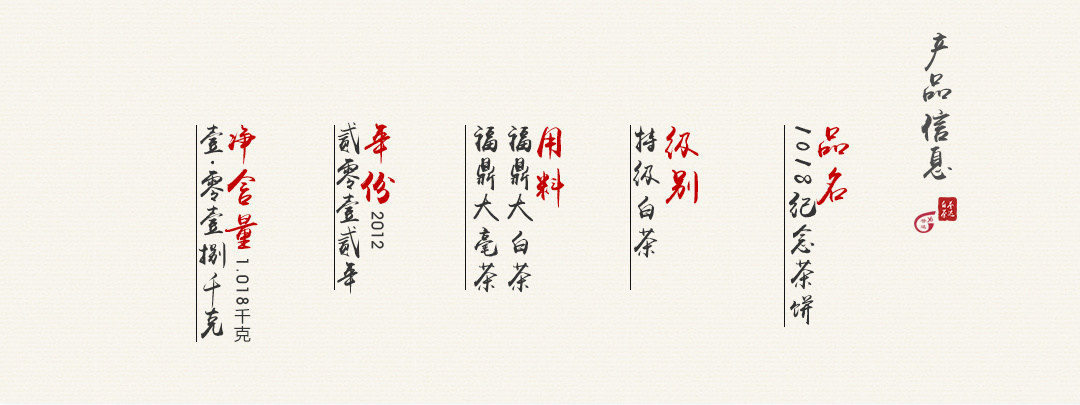 产品信息
品名
1018纪念茶饼
级别
特级白茶
用料
福鼎大白茶
福鼎大毫茶
年份 2012
贰零壹贰年
净含量 1.018千克
壹·零壹捌千克